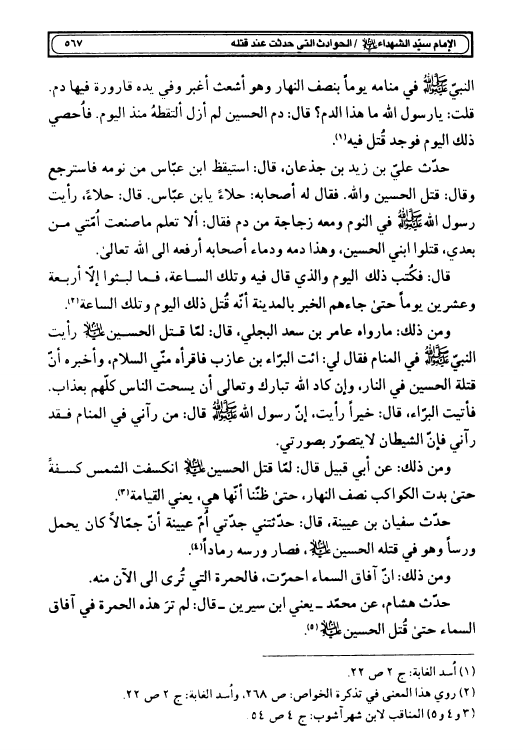 الإمام سيّد الشهداء عليه السلام / الحوادث التي حدثت عند قتله ٥٦٧
النبيّ ﷺ في منامه يوماً بنصف النهار وهو أشعث أغبر وفي يده قارورة فيها دم.
قلت: يارسول الله ما هذا الدم؟ قال: دم الحسين لم أزل ألتقطهُ منذ اليوم. فأحصي
ذلك اليوم فوجد قُتل فيه(١).
حدّث عليّ بن زيد بن جذعان، قال: استيقظ ابن عبّاس من نومه فاسترجع
وقال: قتل الحسين والله. فقال له أصحابه: حلاءً يابن عبّاس. قال: حلاءً، رأيت
رسول الله ﷺ في النوم ومعه زجاجة من دم فقال: ألا تعلم ماصنعت أمّتي مـن
بعدي، قتلوا ابني الحسين، وهذا دمه ودماء أصحابه أرفعه الى الله تعالىٰ.
قال: فكُتب ذلك اليوم والذي قال فيه وتلك السـاعة، فـما لبثوا إلّا أربعة
وعشرين يوماً حتىٰ جاءهم الخبر بالمدينة أنّه قُتل ذلك اليوم وتلك الساعة(٢).
ومن ذلك: مارواه عامر بن سعد البجلي، قال: لمّا قـتل الحسـين عليه السلام رأيت
النبيّ ﷺ في المنام فقال لي: ائت البرّاء بن عازب فاقرأه منّي السلام، وأخبره أنّ
قتلة الحسين في النار، وإن كاد الله تبارك وتعالى أن يسحت الناس كلّهم بعذاب.
فأتيت البرّاء، قال: خيراً رأيت، إنّ رسول الله ﷺ قال: من رآني في المنام فـقد
رآني فإنّ الشيطان لايتصوّر بصورتي.
ومن ذلك: عن أبي قبيل قال: لمّا قتل الحسين عليه السلام انكسفت الشمس كسـفةً
حتىٰ بدت الكواكب نصف النهار، حتىٰ ظنّنا أنّها هي، يعني القيامة(٣).
حدّث سفيان بن عيينة، قال: حدّثتني جدّتي أمّ عيينة أنّ جمّالاً كان يحمل
ورساً وهو في قتله الحسين عليه السلام، فصار ورسه رماداً(٤).
ومن ذلك: انّ آفاق السماء احمرّت، فالحمرة التي تُرى الى الآن منه.
حدّث هشام، عن محمّد ـ يعني ابن سيرين ـ قال: لم ترَ هذه الحمرة في آفاق
السماء حتىٰ قُتل الحسين عليه السلام(٥).
(١) اُسد الغابة: ج ٢ ص ٢٢.
(٢) روي هذا المعنى في تذكرة الخواص: ص ٢٦٨، وأسد الغابة: ج ٢ ص ٢٢.
(٣ و٤ و٥) المناقب لابن شهرآشوب: ج ٤ ص ٥٤.